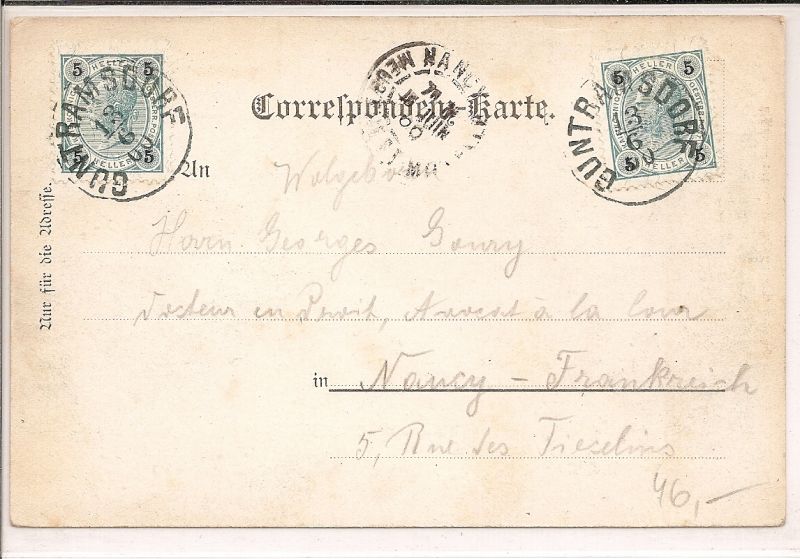 5 HELLER 5
5 HELLER 5
GUNTRAMSDORF
13 6 00
NANCY
5 HELLER 5
5 HELLER 5
GUNTRAMSDORF
13 6 00
Correspondenz-Karte.
An Wolgeboren
Herrn Georges Goury
Docteur en Droit, Avocat à la Cour
in Nancy - Frankreich
5, Rue des Tieselins
46,-
Nur für die Adresse.